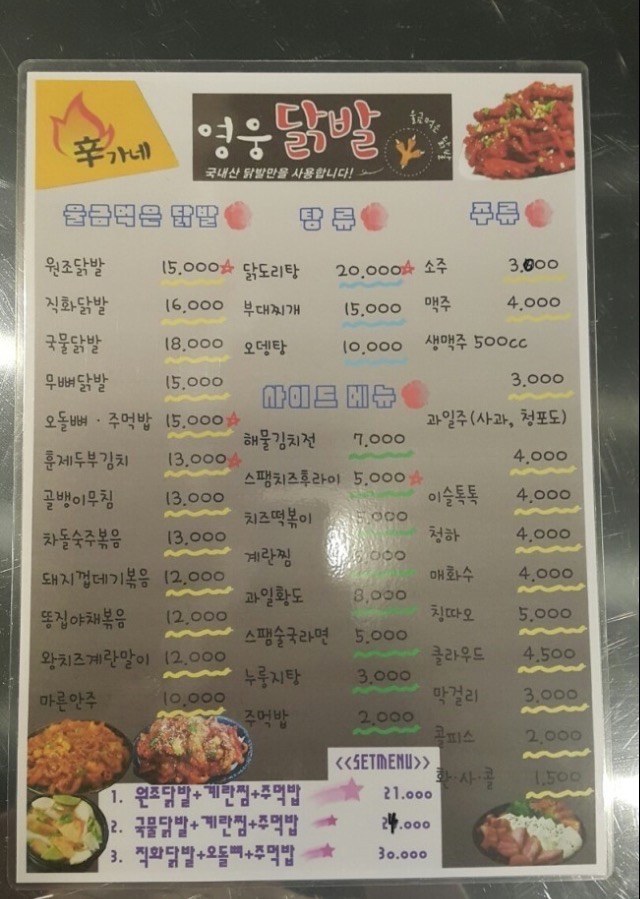 辛가네
영웅 닭발
국내산 닭발만을 사용합니다!
울금먹은 닭발
원조닭발 15,000
직화닭발 16,000
국물닭발 18,000
무뼈닭발 15,000
오돌뼈 · 주먹밥 15,000
훈제두부김치 13,000
골뱅이무침 13,000
차돌숙주볶음 13,000
돼지껍데기볶음 12,000
똥집야채볶음 12,000
왕치즈계란말이 12,000
마른안주 10,000
탕 류
닭도리탕 20,000
부대찌개 15,000
오뎅탕 10,000
사이드 메뉴
해물김치전 7,000
스팸치즈후라이 5,000
치즈떡볶이 5,000
계란찜 ,000
과일황도 8,000
스팸술국라면 5,000
누룽지탕 3,000
주먹밥 2,000
주류
소주
맥주 4,000
생맥주 500cc
3,000
과일주(사과, 청포도)
4,000
이슬톡톡 4,000
청하 4,000
매화수 4,000
칭따오 5,000
클라우드 4,500
막걸리 3,000
쿨피스 2,000
환·사·콜 1,500
<<SETMENU>>
1. 원조닭발+계란찜+주먹밥 21.000
2. 국물닭발+계란찜+주먹밥 24.000
3. 직화닭발+오돌뼈+주먹밥 30.000